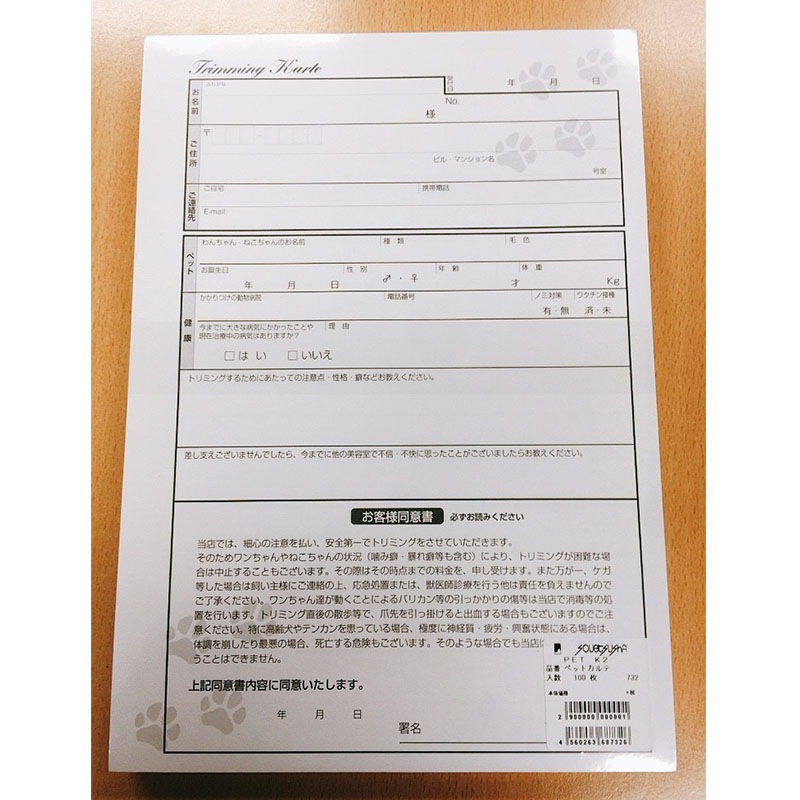 Trimming Karte
年 月 日
ふりがな
お名前
No.
様
ご住所
〒
ビル・マンション名
号室
ご連絡先
ご自宅 携帯電話
E-mail:
ペット
わんちゃん・ねこちゃんのお名前 種類 毛色
お誕生日 性別 年齢 体重
年 月 日 ♂・♀ 才 Kg
健康
かかりつけの動物病院 電話番号 ノミ対策 ワクチン接種
有・無 済・未
今までに大きな病気にかかったことや 理由
現在治療中の病気はありますか?
□はい □いいえ
トリミングするためにあたっての注意点・性格・癖などお教えください。
差し支えございませんでしたら、今までに他の美容室で不信・不快に思ったことがございましたらお教えください。
お客様同意書 必ずお読みください
当店では、細心の注意を払い、安全第一でトリミングをさせていただきます。
そのためワンちゃんやねこちゃんの状況(噛み癖・暴れ癖等も含む)により、トリミングが困難な場
合は中止することもございます。その際はその時点までの料金を、申し受けます。また万が一、ケガ
等した場合は飼い主様にご連絡の上、応急処置または、獣医師診療を行う他は責任を負えませんので
ご了承ください。ワンちゃん達が動くことによるバリカン等の引っかかりの傷等は当店で消毒等の処
置を行います。トリミング直後の散歩等で、爪先を引っ掛けると出血する場合もございますのでご注
意ください。特に高齢犬やテンカンを患っている場合、極度に神経質・疲労・興奮状態にある場合は、
体調を崩したり最悪の場合、死亡する危険もございます。そのような場合でも当店に
うことはできません。
上記同意書内容に同意いたします。
年 月 日
署名
SOUBISUSHA
PET K2
品番 ペットカルテ
入数 100 枚 732
本体価格 +税
2 900000 000001
4 560263 687326